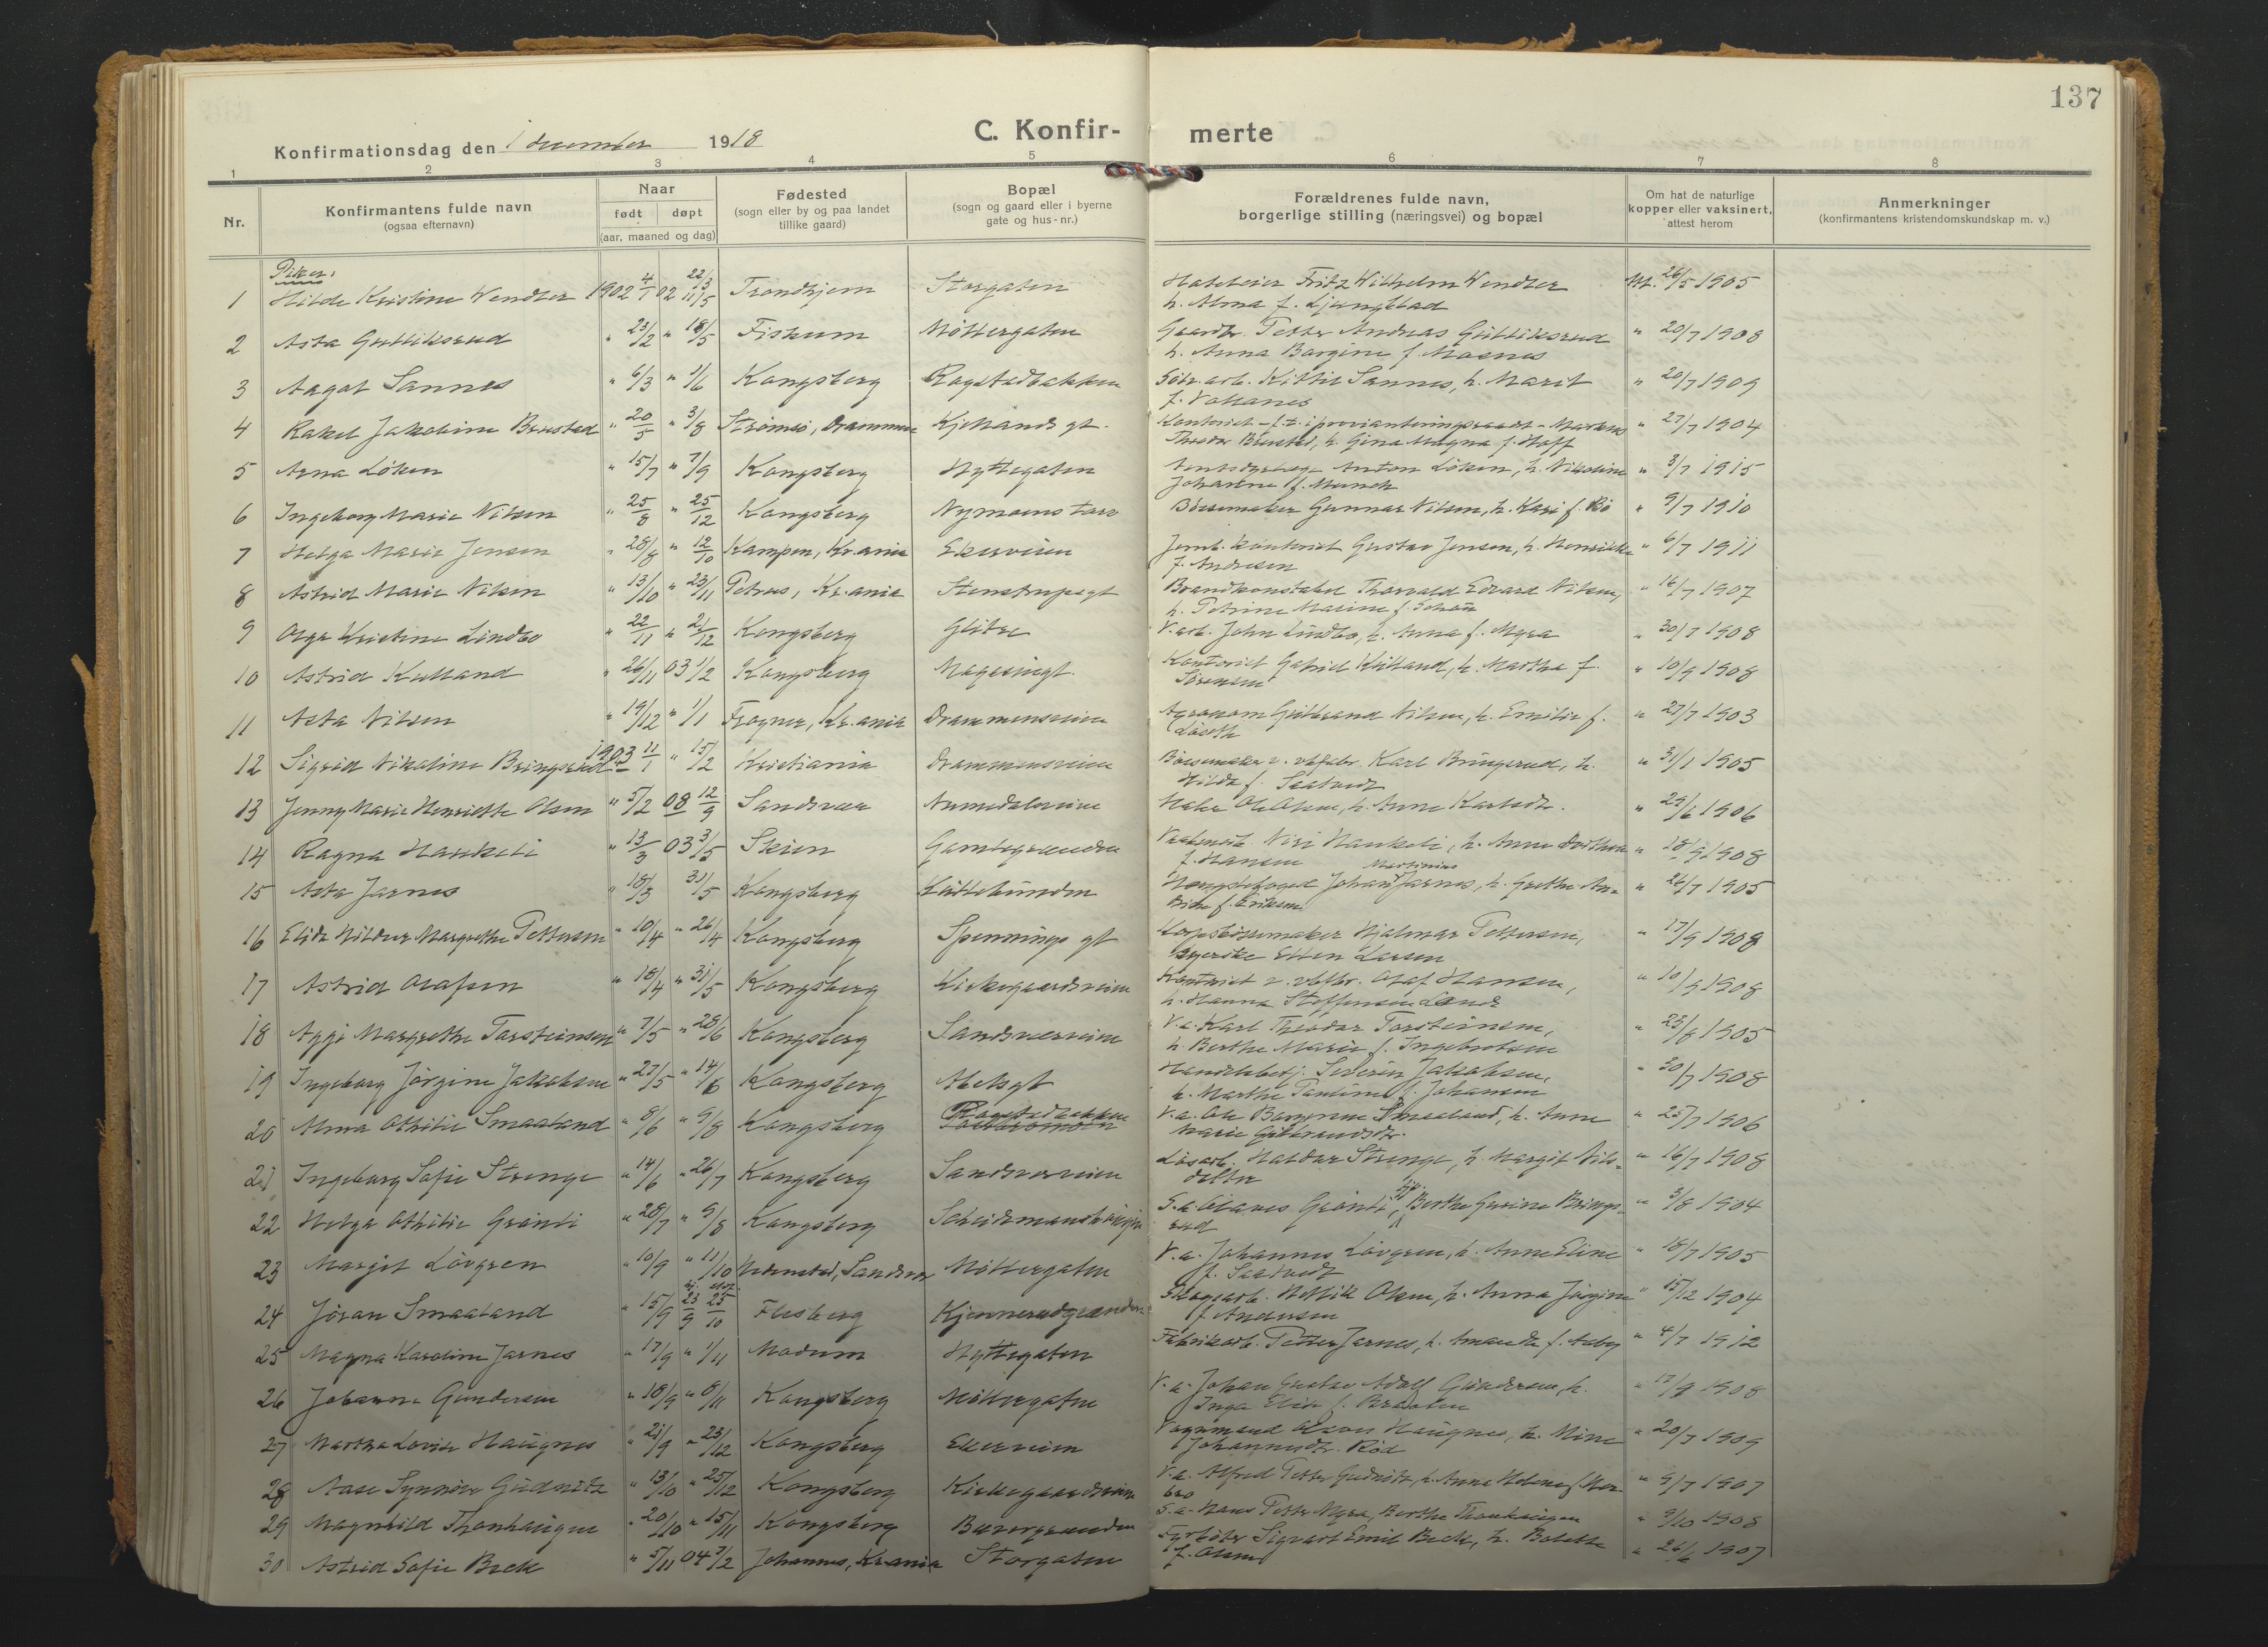 137
C. Konfirmerte
Konfirmationsdag den 1 december 1918
1 2 3 4 5 6 7 8
Nr.
Konfirmantens fulde navn (ogsaa efternavn)
Naar født døpt (aar, maaned og dag)
Fødested (sogn eller by og paa landet tillike gaard)
Bopæl (sogn og gaard eller i byerne gate og hus-nr.)
Forældrenes fulde navn, borgerlige stilling (næringsvei) og bopæl
Om hat de naturlige kopper eller vaksinert, attest herom
Anmerkninger (konfirmantens kristendomskundskap m. v.)
Piker.
1 Hilde Kristine Wendler 1902 4/1 02 Trondhjem Storgaten Fritz Wilhelm Wendler 26/5 1905
h. Alma f. Ljungblad
2 Asta Gulliksrud " 23/2 " 18/5 Fiskum Møllergaten Gaardbr. Petter Andreas Gulliksrud " 20/7 1908
h. Anna Bargine f. Moenes
3 Aagot Sannes " 6/3 " 1/6 Kongsberg Rogstadbakken Kittil Sannes, h. Marit " 20/7 1909
4 Rakel Jakobine Brustad " 20/5 " 3/8 Strømsø, Drammen Kjellands gt. Kontorist - f.t. i provianteringsraadet - Markus " 27/7 1904
Theodor Brustad, h. Gina Magna f. Hoff
5 Arna Løken " 15/7 " 7/9 Kongsberg Hyttegaten Anton Løken, h. Nikoline " 3/7 1915
Johanne f. Munch
6 Ingeborg Marie Nilsen " 25/8 " 25/12 Kongsberg Nymoens torv Børsemaker Gunnar Nilsen, h. Kari f. Bø " 9/7 1910
7 Helga Marie Jensen " 28/8 " 12/10 Kampen, Kr.ania Ekerveien Jernb. kontorist Gustav Jensen, h. Henrikke " 6/7 1911
f. Andresen
8 Astrid Marie Nilsen " 13/10 " 23/11 Petrus, Kr.ania Stenstrupsgt Brandkonstabel Thorvald Edvard Nilsen, " 16/7 1907
h. Petrine Marine f.
9 Olga Kristine Lindbo " 22/11 " 21/12 Kongsberg Glitre V.arb. John Lindbo, h. Anna f. Myra " 30/7 1908
10 Astrid Kulland " 26/11 03 1/2 Kongsberg Magasingt. Kontorist Gabriel Kulland, h. Martha f. " 10/9 1908
Sørensen
11 Asta Nilsen " 19/12 " 1/1 Frogner, Kr.ania Drammensveien Agronom Gulbrand Nilsen, h. Emilie f. " 27/7 1903
Løseth
12 Sigrid Nikoline Bringsrud 1903 11/1 " 15/2 Kristiania Drammensveien Børsemaker v. vbfabr. Karl Bringsrud, h. " 31/1 1905
Hilda f. Saatvedt
13 Jenny Marie Henriette Olsen " 5/2 08 12/9 Sandsvær Numedalsveien Ole Olsen, h. Anne Karlsdtr. " 29/6 1906
14 Ragna Haukeli " 13/3 03 3/5 Skien Gamlegrænden Niri Haukeli, h. Anne Dorthea " 18/9 1908
f. Hansen
15 Asta Jarnes " 18/3 31/5 Kongsberg Hyttebunden Johan Martinius Jarnes, h. Grethe " 26/7 1905
f. Eriksen
16 Elida Hildur Margrethe Pettersen " 10/4 " 26/4 Kongsberg Spennings gt Korpsbørsemaker Hjalmar Pettersen, " 17/9 1908
Ellen Larsen
17 Astrid Olafsen " 18/4 " 31/5 Kongsberg Kirkegaardsveien Kontorist v. vbfbr. Olaf Hansen, " 10/9 1908
h. Hanna Steffensen Lande
18 Aggi Margrethe Torsteinsen " 7/5 " 28/6 Kongsberg Sandsværveien V.a. Karl Theodor Torsteinsen, " 23/8 1905
h. Berthe Marie f. Ingebretsen
19 Ingeborg Jørgine Jakobsen " 27/5 " 14/6 Kongsberg Abelsgt Handelsbetj. Severin Jakobsen, " 30/7 1908
h. Marthe Pauline f. Johansen
20 Alma Othilie Smaaland " 8/6 " 9/8 Kongsberg Rogstedbakken V.a. Ole Smaaland, h. Anne " 25/7 1906
Marie Gulbrandsdtr.
21 Ingeborg Sofie Strenge " 14/6 " 26/7 Kongsberg Sandsværveien Løsarb. Haldor Strenge, h. Margit Nils- " 16/7 1908
datter
22 Helga Othilie Grønli " 28/7 " 9/8 Kongsberg S.a. Olaves Grønli, Berthe Gurine Brings- " 3/8 1904
rud
23 Margit Løvgren " 10/9 " 11/10 Hedenstad, Sandsvær Møllergaten V.a. Johannes Løvgren, h. Anne Eline " 18/7 1905
f. Saatvedt
24 Jøran Smaaland " 15/9 23/9 25/10 Flesberg Kjennerudgrænden Skogsarb. Kittil Olsen, h. Anna Jørgine " 15/12 1904
f. Andersen
25 Magna Karoline Jarnes " 17/9 " 1/11 Modum Hyttegaten Fabrikarb. Petter Jarnes, h. Amanda f. Aaby " 4/7 1912
26 Johanne Gundersen " 18/9 " 8/11 Kongsberg Møllergaten V.a. Johan Gustav Adolf Gundersen, h. " 17/9 1908
Inga Elise f. Braaten
27 Martha Lovise Haugnes " 21/9 " 23/12 Kongsberg Ekerveien Vognmand Haugnes, h. Mina " 20/7 1909
Johannesdtr. Rød
28 Aase Synnøve Gudnitz " 13/10 " 25/12 Kongsberg Kirkegaardsveien V.a. Alfred Petter Gudnitz, h. Anne Helene f. " 9/7 1907
29 Magnhild Thonhaugen " 20/10 " 15/11 Kongsberg Buvergrænden S.a. Hans Petter Myra, Berthe Thonhaugen " 9/10 1908
30 Astrid Sofie Beck " 5/11 04 7/2 Johannes, Kr.ania Storgaten Fyrbøter Sigvart Emil Beck, h. Bolette " 26/6 1907
f. Olsen